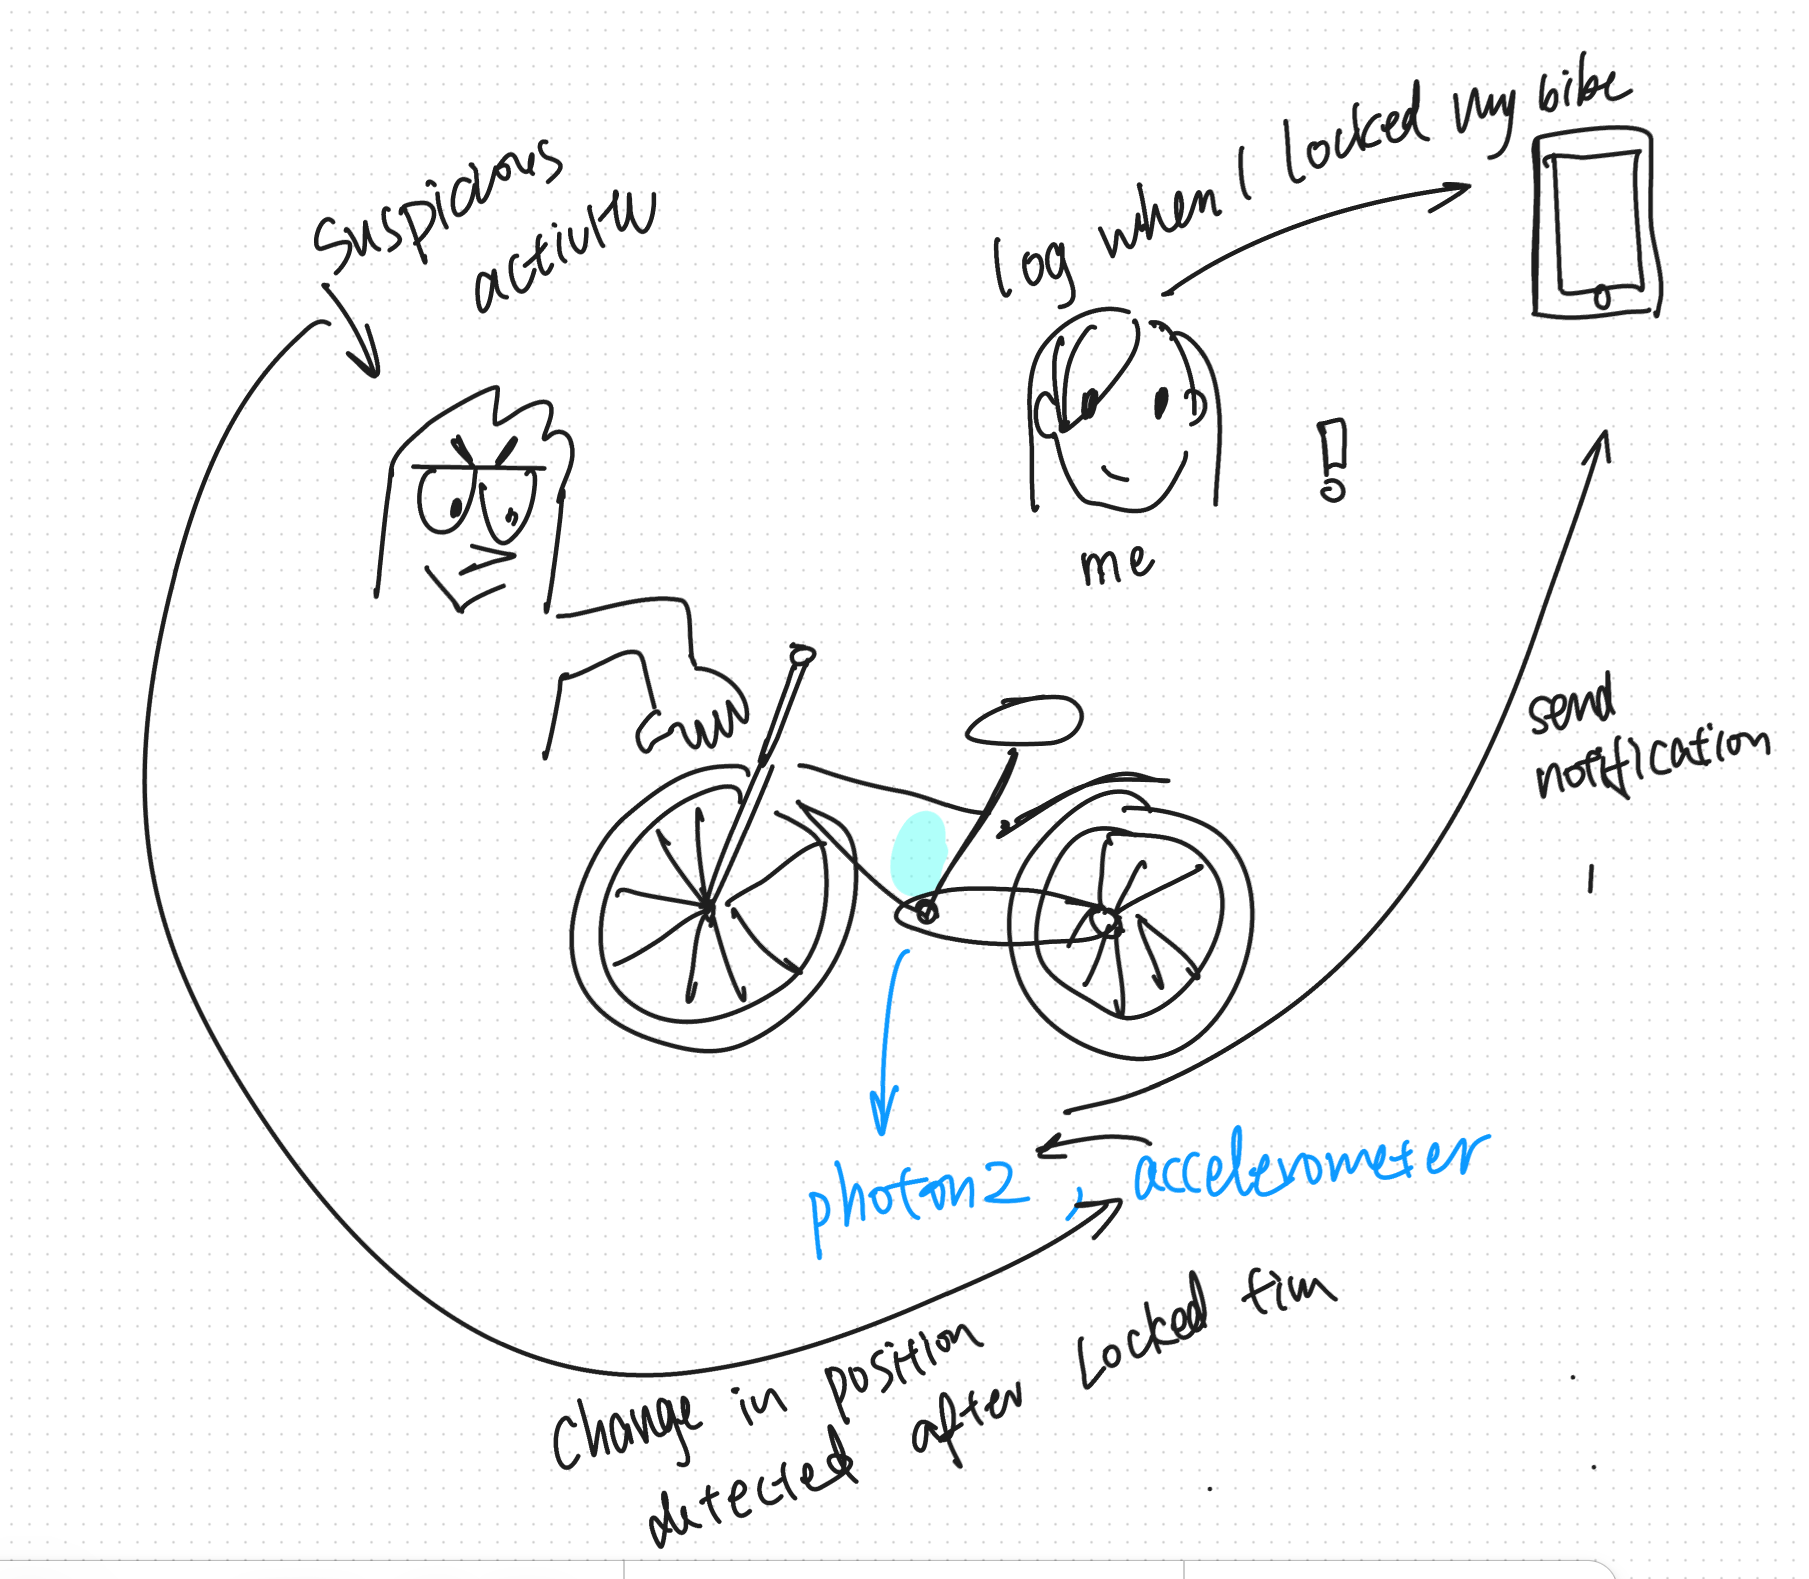 suspicious
activity
log when I locked my bike
me
send
notification
photon2 , accelerometer
change in position
detected after locked tim